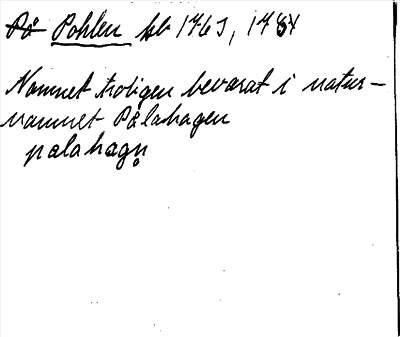 På Pohlen kb 1765, 1784
Namnet troligen bevarat i natur-
namnet Pålahagen
palahagn̥